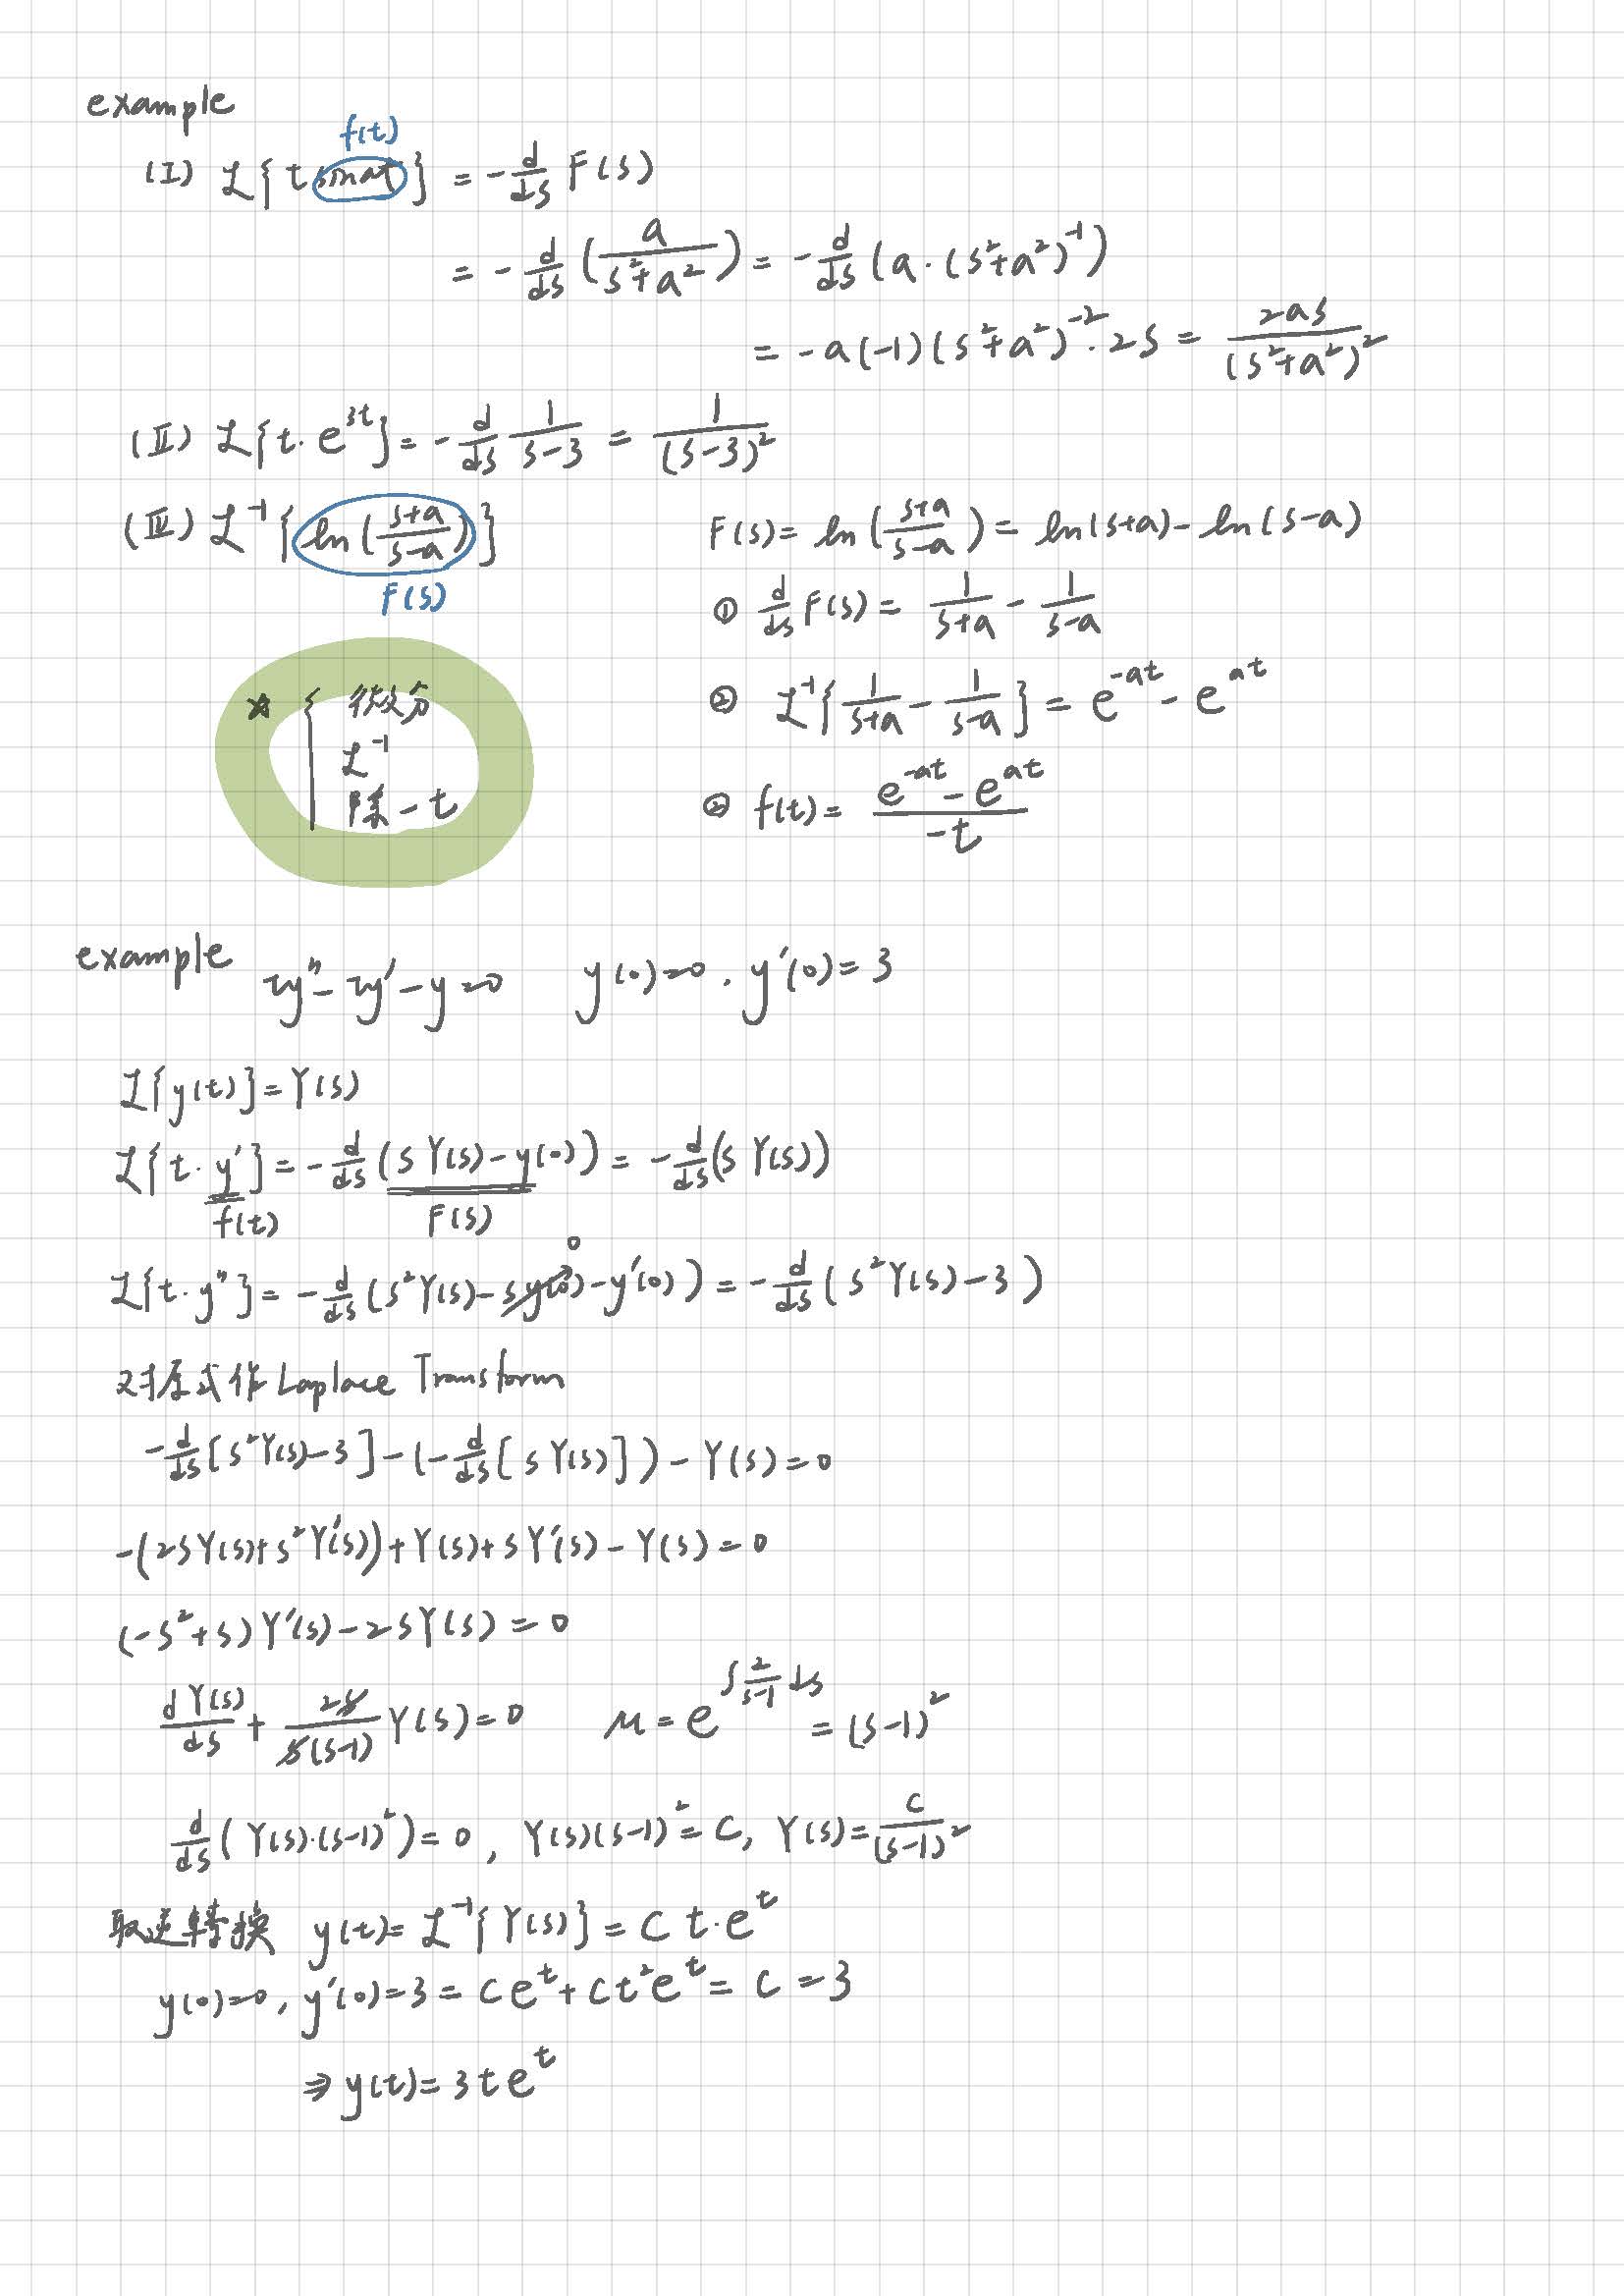 example
f(t)
(I) ℒ{t sin at} = -d/ds F(s)
= -d/ds (a/(s²+a²)) = -d/ds (a·(s²+a²)⁻¹)
= -a(-1)(s²+a²)⁻²·2s = 2as/(s²+a²)²
(II) ℒ{t·e³ᵗ} = -d/ds 1/(s-3) = 1/(s-3)²
(III) ℒ⁻¹{ln((s+a)/(s-a))}
F(s)
F(s) = ln((s+a)/(s-a)) = ln(s+a) - ln(s-a)
① d/ds F(s) = 1/(s+a) - 1/(s-a)
② ℒ⁻¹{1/(s+a) - 1/(s-a)} = e⁻ᵃᵗ - eᵃᵗ
③ f(t) = (e⁻ᵃᵗ - eᵃᵗ)/(-t)
☆ { 微分
ℒ⁻¹
除 -t
example ty" - ty' - y = 0 y(0)=0, y'(0)=3
ℒ{y(t)} = Y(s)
ℒ{t·y'} = -d/ds (sY(s) - y(0)) = -d/ds (sY(s))
f(t) F(s)
0
ℒ{t·y"} = -d/ds (s²Y(s) - sy(0) - y'(0)) = -d/ds (s²Y(s) - 3)
对原式作 Laplace Transform
-d/ds [s²Y(s) - 3] - (-d/ds [sY(s)]) - Y(s) = 0
-(2sY(s) + s²Y'(s)) + Y(s) + sY'(s) - Y(s) = 0
(-s²+s)Y'(s) - 2sY(s) = 0
dY(s)/ds + 2s/(s(s-1)) Y(s) = 0 μ = e^(∫ 2/(s-1) ds) = (s-1)²
d/ds (Y(s)·(s-1)²) = 0, Y(s)(s-1)² = C, Y(s) = C/(s-1)²
取逆轉換 y(t) = ℒ⁻¹{Y(s)} = C t·eᵗ
y(0)=0, y'(0)=3 = Ceᵗ + Ct²eᵗ = C = 3
⇒ y(t) = 3teᵗ